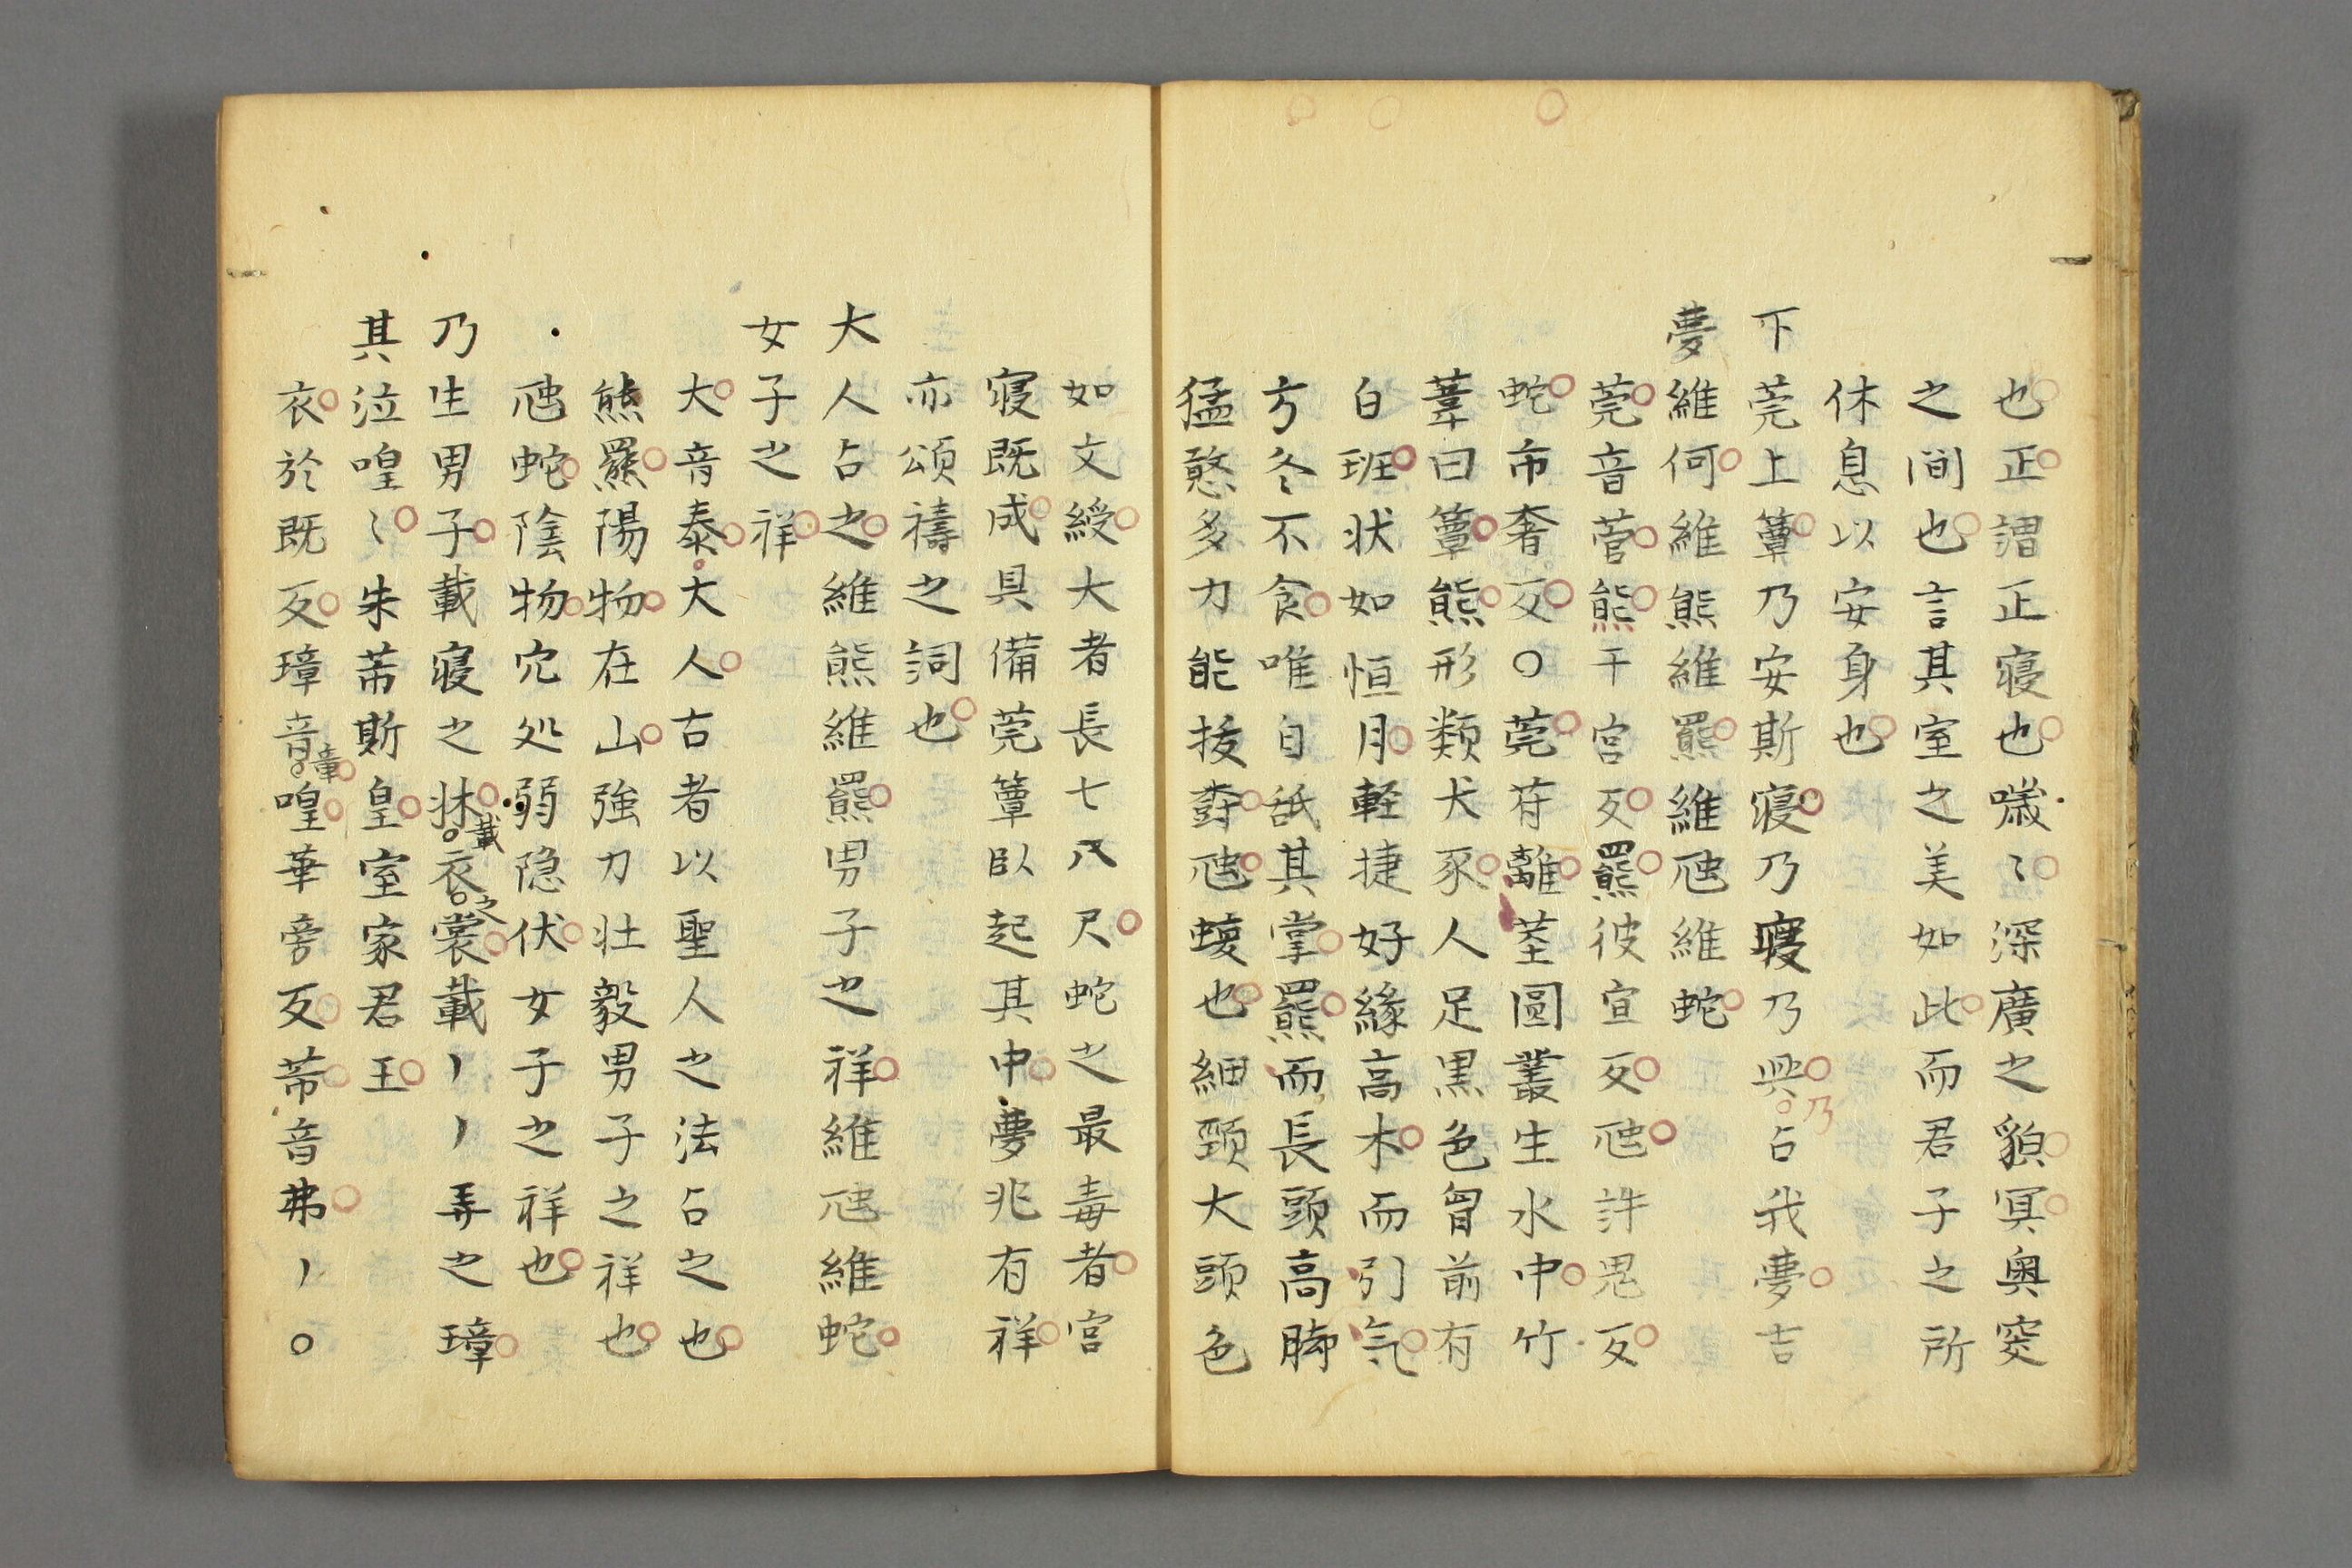 也正謂正寝也噦〻深廣之貌冥奥窔
之間也言其室之美如此而君子之所
休息以安身也
下莞上簟乃安斯寝乃寝乃興乃占我夢吉
夢維何維熊維羆維虺維蛇
莞音菅熊干宮反羆彼宣反虺許鬼反
蛇市奢反○莞苻離莖圓叢生水中竹
葦曰簟熊形類犬豕人足黒色胷前有
白班状如恒月軽捷好縁高木而引气
方冬不食唯自舐其掌羆而長頭高脚
猛憨多力能抜虺也細頸大頭色
如文綬大者長七八尺蛇之最毒者宮
寝既成具備莞簟臥起其中夢兆有祥
亦頌禱之詞也
大人占之維熊維羆男子之祥維虺維蛇
女子之祥
大音泰大人古者以聖人之法占之也
熊羆陽物在山強力壮毅男子之祥也
虺蛇陰物穴処弱隐伏女子之祥也
乃生男子載寝之牀載衣之裳載丶丶弄之璋
其泣喤〻朱芾斯皇室家君王
衣於既反璋音章喤華旁反芾音弗丶○